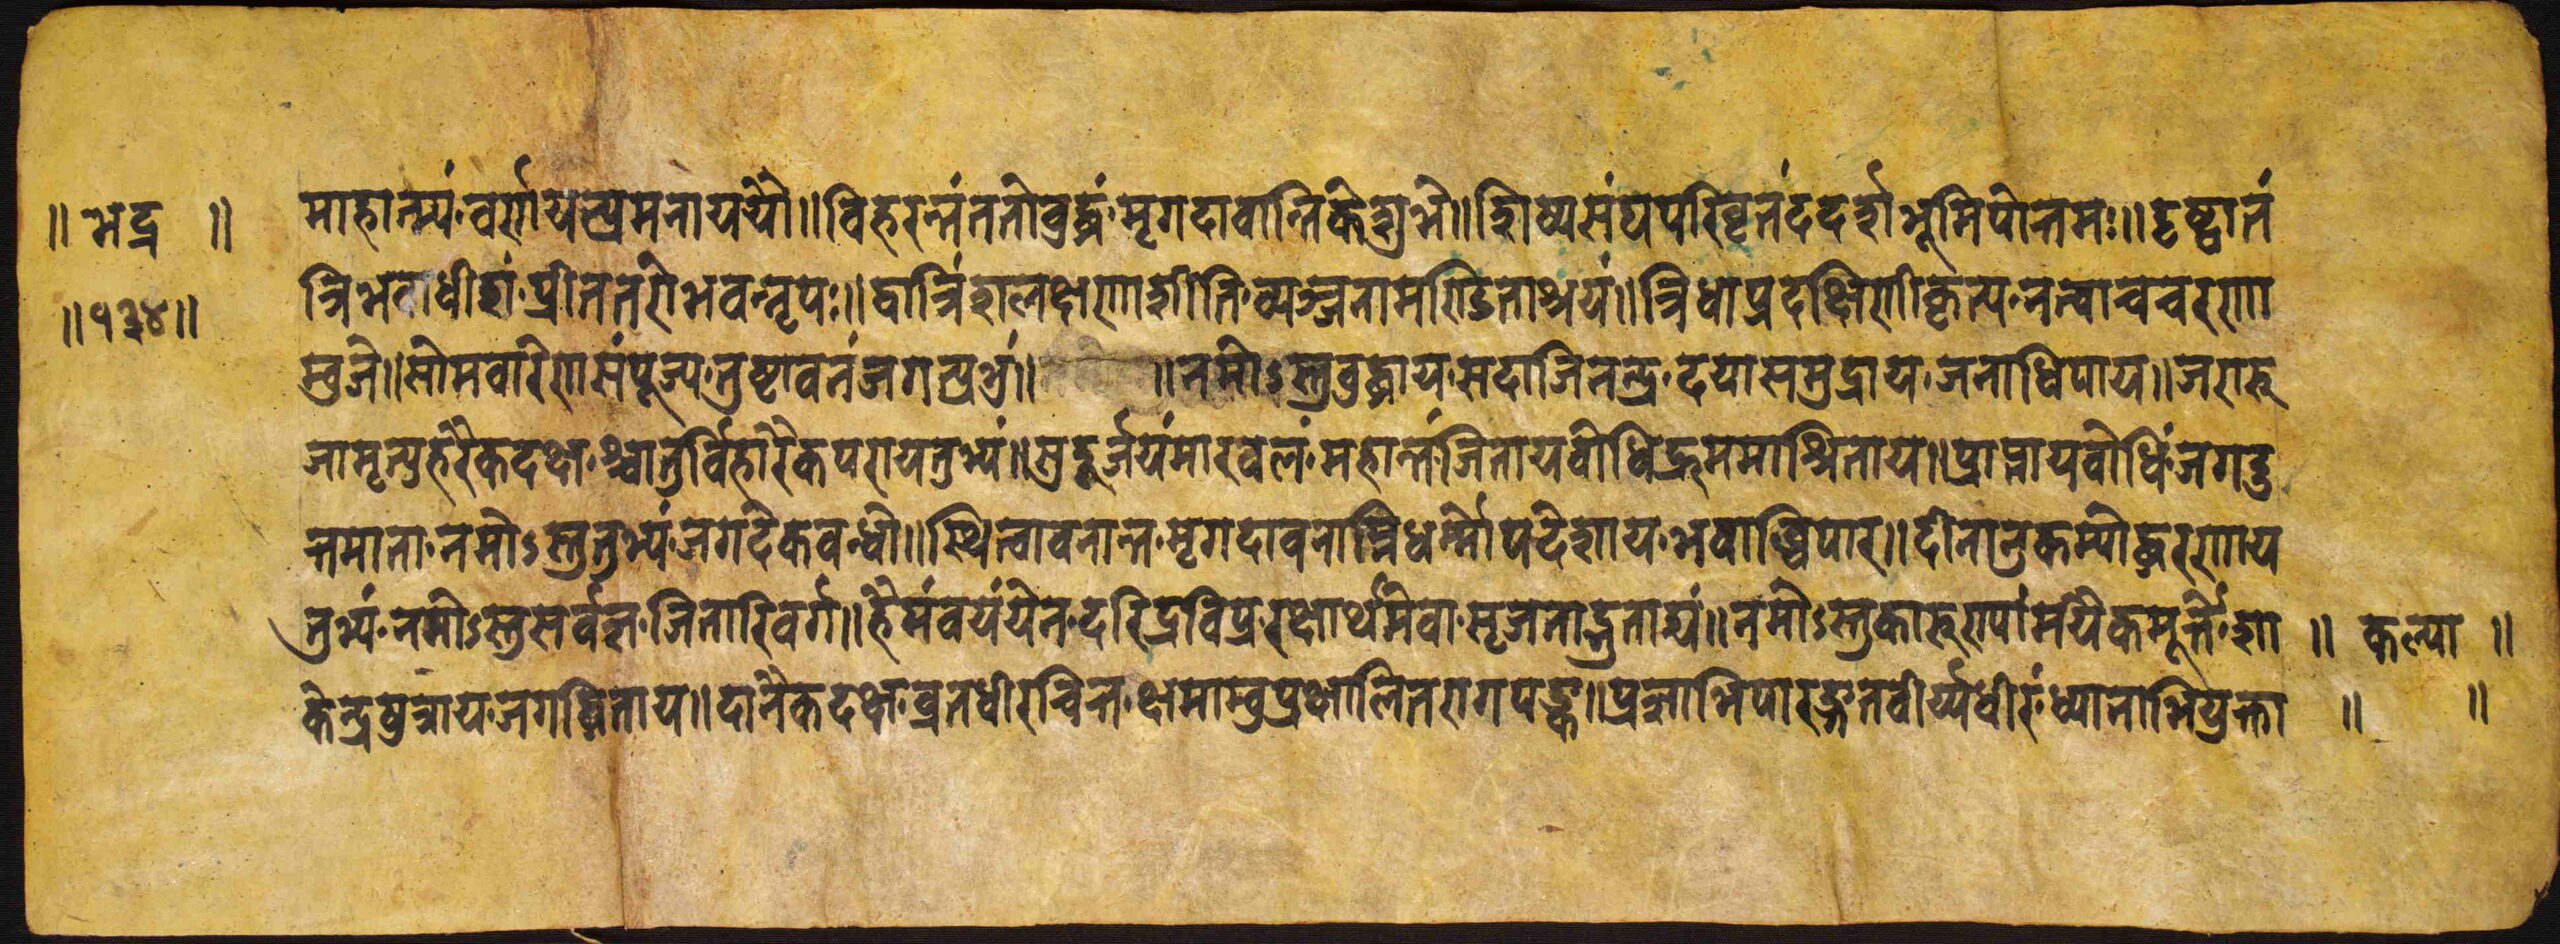 ॥ भद्र ॥ माहात्म्यं वर्णयत्प्रमनाययौ॥ विहरन्तं ततो बुद्धं मृगदावान्तिके शुभे॥ शिष्यसंघपरिवृतं ददर्श भूमिपोत्तमः॥ दृष्ट्वा तं
॥ १३४ ॥ त्रिभवाधीशं प्रीततरोभवन्नृपः॥ द्वात्रिंशलक्षणाशीति व्यञ्जनामण्डिताश्रयं॥ त्रिधा प्रदक्षिणीकृत्य नत्वा च चरणा
म्बुजे॥ सोमवारिणा संपूज्य तुष्टाव तं जगत्प्रभुं॥ ॥ नमोऽस्तु बुद्धाय सदा जिनेन्द्र दयासमुद्राय जनाधिपाय॥ जरारु
जामृत्युहरैकदक्ष श्चातुर्विहारैकपरायतुभ्यं॥ सुदुर्जयंमारबलं महान्तं जितायबोधिद्रुममाश्रिताय॥ प्राप्तायबोधिं जगदु
त्तमाना नमोऽस्तुतुभ्यं जगदेकबन्धो॥ स्थित्वावनान्त मृगदावनाम्नि धर्मोपदेशाय भवाब्धिपार॥ दीनानुकम्पोद्धरणाय
तुभ्यं नमोऽस्तु सर्वज्ञ जितारिवर्ग॥ हैमंवयंयेन दरिद्रविप्र रक्षार्थमेवा सृजताद्भुताद्यं॥ नमोऽस्तुकारुण्यमयैकमूर्त्ते शा ॥ कल्पा ॥
केन्द्रपुत्राय जगद्धिताय॥ दानैकदक्ष व्रतधीरचित्त क्षमाम्बुप्रक्षालितरागपङ्क॥ प्रज्ञाभिपारङ्गतवीर्य्यधीरं ध्यानाभियुक्ता ॥ ॥